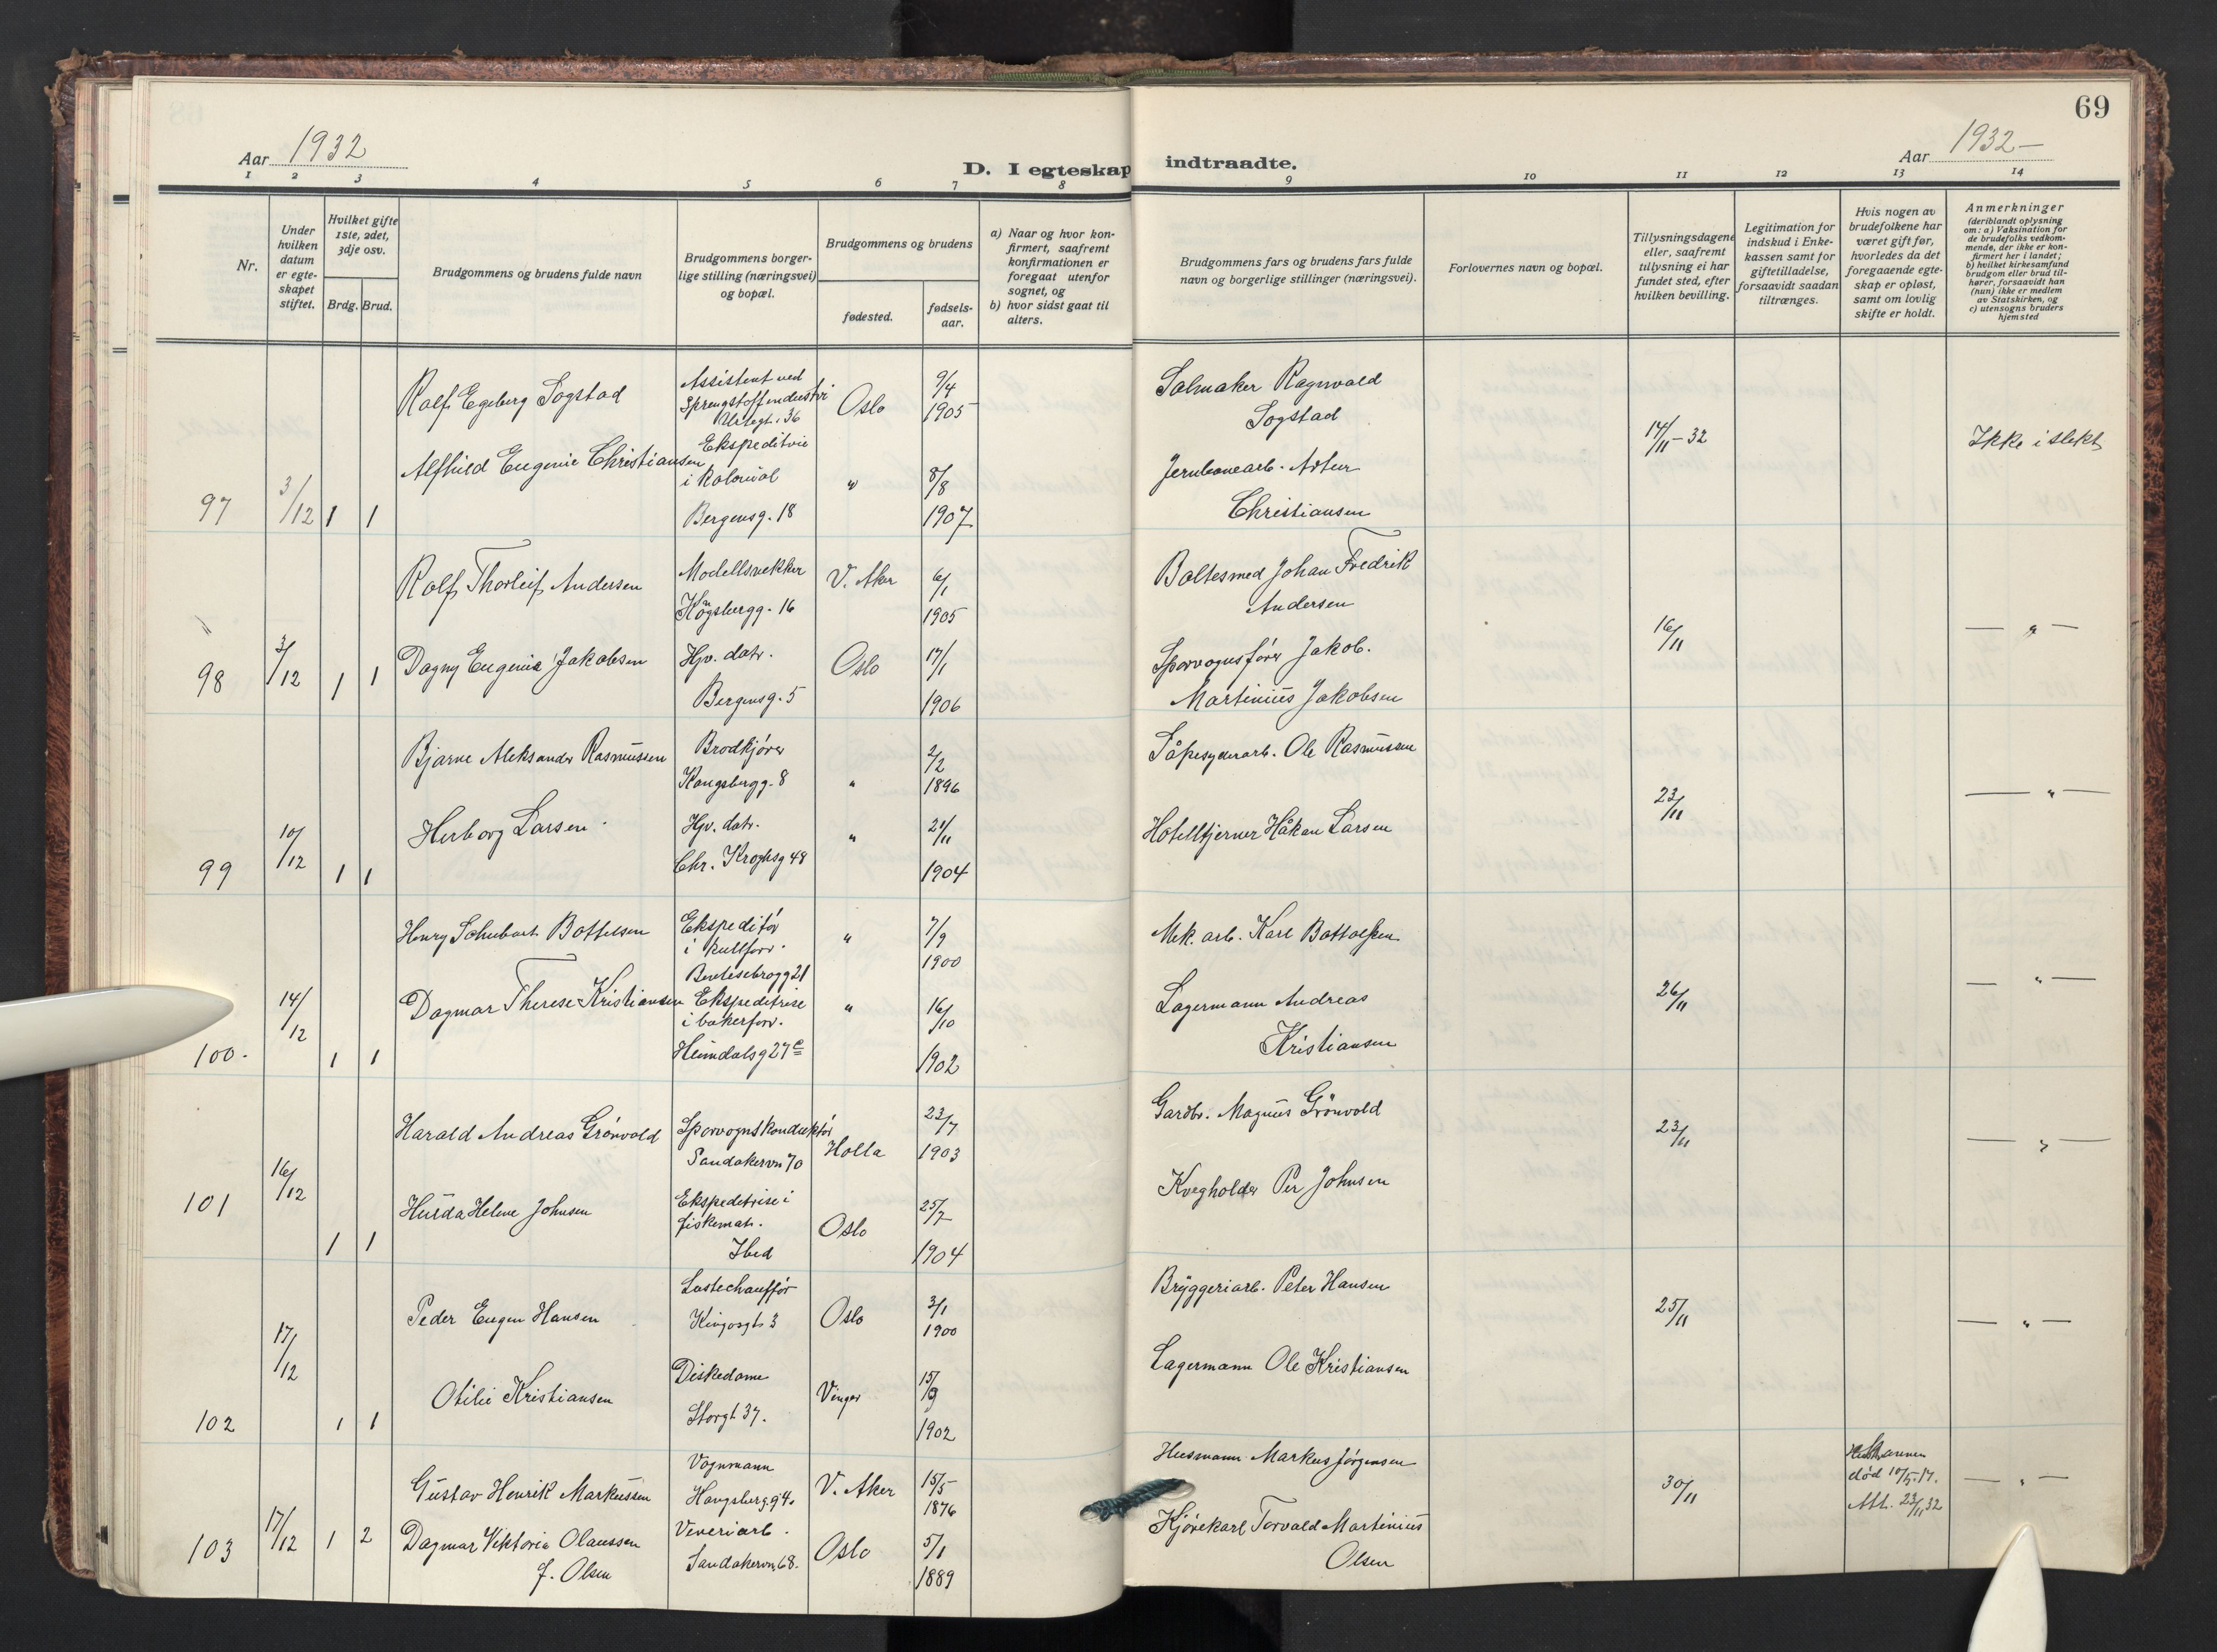 69
Aar 1932
Aar 1932 –
D. I egteskap indtraadte.
1 2 3 4 5 6 7 8 9 10 11 12 13 14
Nr.
Under hvilken datum er egteskapet stiftet.
Hvilket gifte 1ste, 2det, 3dje osv.
Brdg. Brud.
Brudgommens og brudens fulde navn
Brudgommens borgerlige stilling (næringsvei) og bopæl.
Brudgommens og brudens
fødested.
fødselsaar.
a) Naar og hvor konfirmert, saafremt konfirmationen er foregaat utenfor sognet, og
b) hvor sidst gaat til alters.
Brudgommens fars og brudens fars fulde navn og borgerlige stillinger (næringsvei).
Forlovernes navn og bopæl.
Tillysningsdagene eller, saafremt tillysning ei har fundet sted, efter hvilken bevilling.
Legitimation for indskud i Enkekassen samt for giftetilladelse, forsaavidt saadan tiltrænges.
Hvis nogen av brudefolkene har været gift før, hvorledes da det foregaaende egteskap er opløst, samt om lovlig skifte er holdt.
Anmerkninger
(deriblandt oplysning om: a) Vaksination for de brudefolks vedkommende, der ikke er konfirmert her i landet; b) hvilket kirkesamfund brudgom eller brud tilhører, forsaavidt han (hun) ikke er medlem av Statskirken, og c) utensogns bruders hjemsted
97 3/12 1 1
Rolf Egeberg Sogstad
Assistent ved
Sprengstoffindustri
36
Oslo
9/4
1905
Salmaker Ragnvald
Sogstad
14/11 – 32
Ikke i slekt
Alfhild Eugenie Christiansen
Ekspeditrise
i kolonial
Bergensg. 18
"
8/8
1907
Jernbanearb. Artur
Christiansen
98 3/12 1 1
Rolf Thorleif Andersen
Modellsnekker
Kongsbergg. 16
V. Aker
6/1
1905
Boltesmed Johan Fredrik
Andersen
16/11
— " —
Dagny Eugenie Jakobsen
Hjv. datr.
Bergensg. 5
Oslo
17/1
1906
Sporvognsfører Jakob.
Martinius Jakobsen
99 10/12 1 1
Bjarne Aleksander Rasmussen
Brødkjører
Kongsbergg. 8
"
2/2
1896
Såpesyderarb. Ole Rasmussen
23/11
— " —
Herborg Larsen
Hjv. datr.
Chr. Kroghsg 48
"
21/11
1904
Hotelltjener Håkan Larsen
100. 14/12 1 1
Henry Schubart Bottolsen
Ekspeditør
i kullforr.
Bentsebrogg 21
"
7/9
1900
Mek. arb. Karl Bottolfsen
26/11
— " —
Dagmar Therese Kristiansen
Ekspeditrise
i bakerforr.
Heimdalsg 27 c
"
16/10
1902
Lagermann Andreas
Kristiansen
101 16/12 1 1
Harald Andreas Grönvold
Sporvognskonduktør
Sandakervn 70
Holla
23/7
1903
Gardbr. Magnus Grönvold
23/11
— " —
Hulda Helene Johnsen
Ekspeditrise i
fiskemat.
Ibid
Oslo
25/7
1904
Kvegholder Per Johnsen
102 17/12 1 1
Peder Eugen Hansen
Lastechauffør
Kingosgt. 3
Oslo
3/1
1900
Bryggeriarb. Peter Hansen
25/11
— " —
Otilie Kristiansen
Diskedame
Storgt 37.
Vinger
15/9
1902
Lagermann Ole Kristiansen
103 17/12 1 2
Gustav Henrik Markussen
Vognmann
Kongsbergg 4.
V. Aker
15/5
1876
Husmann Markus Jørgensen
30/11
Mannen
død 10/5 - 17.
Att. 23/11 32
— " —
Dagmar Viktoria Olaussen
f. Olsen
Veveriarb.
Sandakervn. 68.
Oslo
5/1
1889
Kjørekarl Torvald Martinius
Olsen